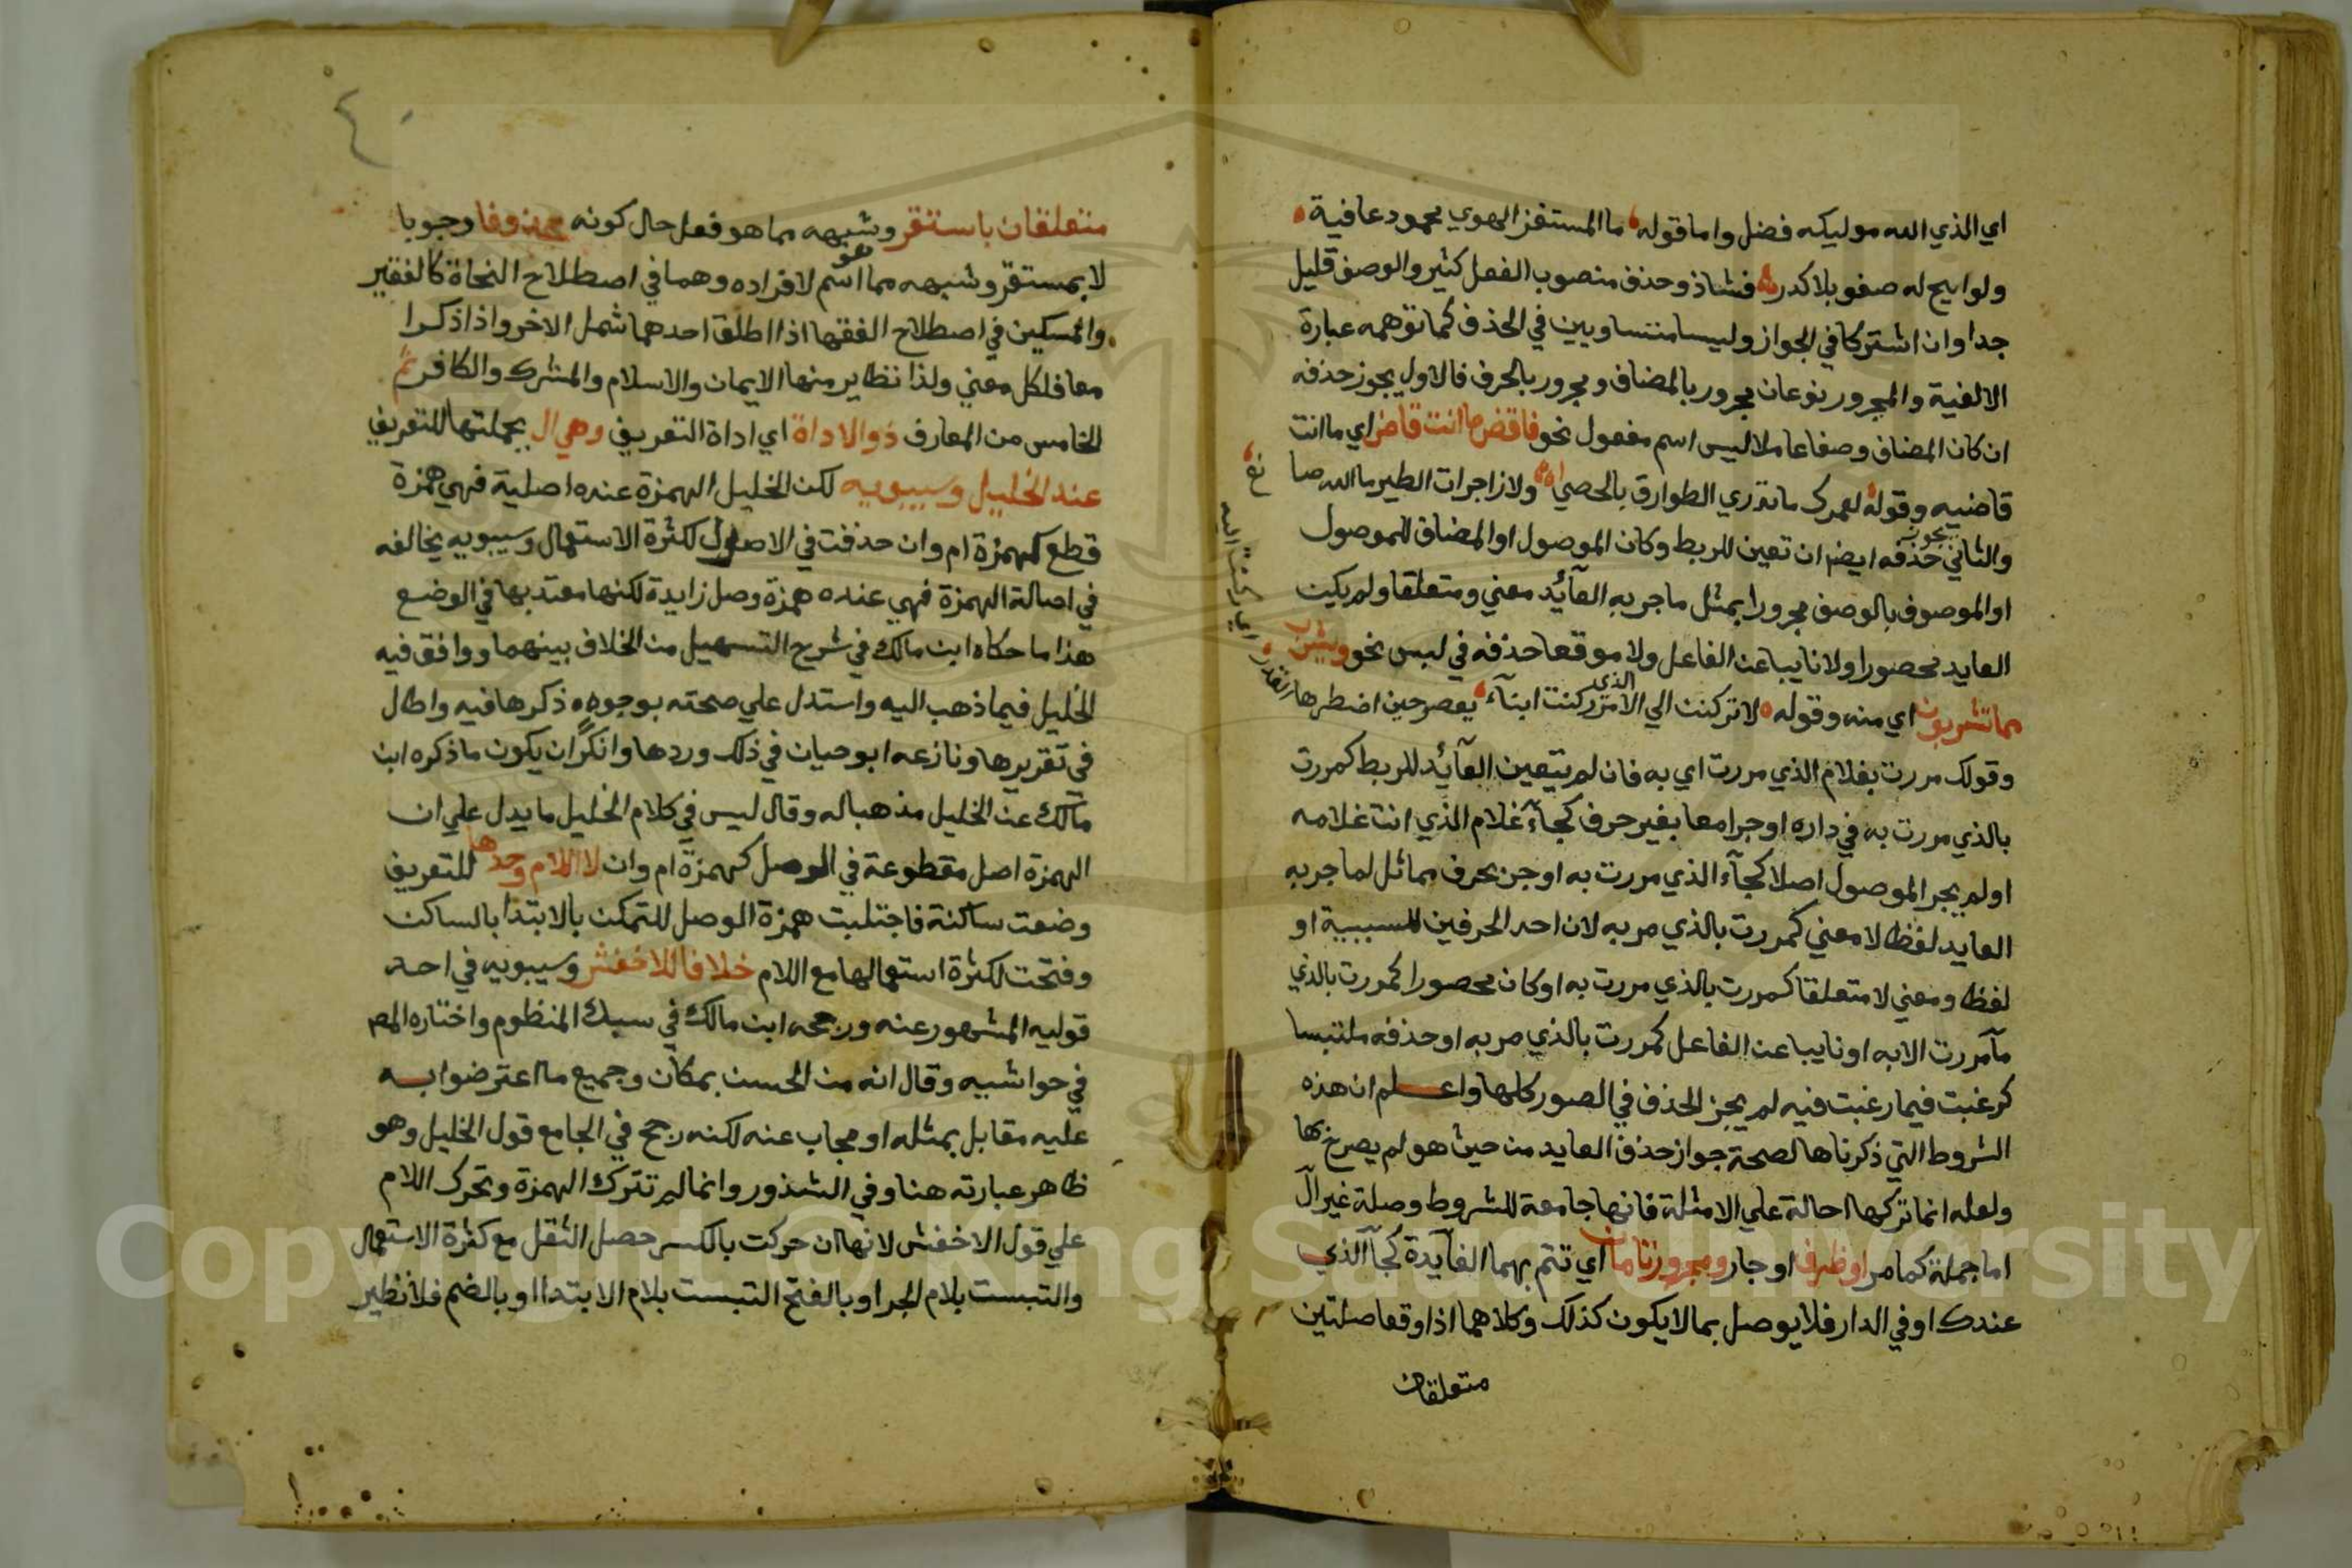 اي الذي الله موليكه فضل واما قوله ما المستفز الهوي محمود عافية
ولو اتيح له صفو بلا كدر فشاذ وحذف منصوب الفعل كثير والوصف قليل
جدا وان اشتركا في الجواز وليسا متساويين في الحذف كما توهمه عبارة
الالفية والمجرور نوعان مجرور بالمضاف ومجرور بالحرف فالاول يجوز حذفه
ان كان المضاف وصفا عاملا ليس اسم مفعول نحو فاقض ما انت قاض اي ما انت
قاضيه وقوله لعمرك ما تدري الطوارق بالحصي ولا زاجرات الطير ما الله صا
نع
والثاني يجوز حذفه ايضا ان تعين للربط وكان الموصول او المضاف للموصول
او الموصوف بالوصف مجرورا بمثل ما جر به العآئد معني ومتعلقا ولم يكن
العايد محصورا ولا نايبا عن الفاعل ولا موقعا حذفه في لبس نحو ويشرب
مما تشربون اي منه وقوله لا تركنن الي الامر الذي ركنت ابنآء يعصر حين اضطرها القدر
اي ركنت اليه
وقولك مررت بغلام الذي مررت اي به فان لم يتعين العآئد للربط كمررت
بالذي مررت به في داره او جرا معا بغير حرف كجآء غلام الذي انت غلامه
او لم يجر الموصول اصلا كجآء الذي مررت به او جر بحرف مماثل لما جر به
العايد لفظا لا معني كمررت بالذي مر به لان احد الحرفين للسببية او
لفظا ومعني لا متعلقا كمررت بالذي مررت به او كان محصورا كمررت بالذي
مآ مررت الا به او نايبا عن الفاعل كمررت بالذي مر به او حذفه ملتبسا
كرغبت فيما رغبت فيه لم يجز الحذف في الصور كلها واعلم ان هذه
الشروط التي ذكرناها لصحة جواز حذف العايد من حيث هو لم يصرح بها
ولعله انما تركها احالة علي الامثلة فانها جامعة للشروط وصلة غير ال
اما جملة كما مر او ظرف او جار ومجرور تامان اي تتم بهما الفآئدة كجآ الذي
عندك او في الدار فلا يوصل بما لا يكون كذلك وكلاهما اذا وقعا صلتين
متعلقان
٤٠
متعلقان باستقر وشبهه مما هو فعل حال كونه محذوفا وجوبا
لا بمستقر وشبهه مما هو اسم لافراده وهما في اصطلاح النحاة كالفقير
والمسكين في اصطلاح الفقها اذا اطلق احدهما شمل الاخر واذا ذكرا
معا فلكل معني ولذا نظاير منها الايمان والاسلام والمشرك والكافر ثم
الخامس من المعارف ذو الاداة اي اداة التعريف وهي ال بجملتها للتعريف
عند الخليل وسيبويه لكن الخليل الهمزة عنده اصلية فهي همزة
قطع كهمزة ام وان حذفت في الاصول لكثرة الاستعمال وسيبويه يخالفه
في اصالة الهمزة فهي عنده همزة وصل زايدة لكنها معتد بها في الوضع
هذا ما حكاه ابن مالك في شرح التسهيل من الخلاف بينهما ووافق فيه
الخليل فيما ذهب اليه واستدل علي صحته بوجوه ذكرها فيه واطال
في تقريرها ونازعه ابو حيان في ذلك وردها وانكر ان يكون ما ذكره ابن
مالك عن الخليل مذهبا له وقال ليس في كلام الخليل ما يدل علي ان
الهمزة اصل مقطوعة في الوصل كهمزة ام وان لا اللام وحدها للتعريف
وضعت ساكنة فاجتلبت همزة الوصل للتمكن بالابتدا بالساكن
وفتحت لكثرة استعمالها مع اللام خلافا للاخفش وسيبويه في احد
قوليه المشهور عنه ورجحه ابن مالك في سبك المنظوم واختاره المص
في حواشيه وقال انه من الحسن بمكان وجميع ما اعترضوا به
عليه مقابل بمثله او مجاب عنه لكنه رجح في الجامع قول الخليل وهو
ظاهر عبارته هنا وفي الشذور وانما لم تترك الهمزة وتحرك اللام
علي قول الاخفش لانها ان حركت بالكسر حصل الثقل مع كثرة الاستعمال
والتبست بلام الجر او بالفتح التبست بلام الابتدا او بالضم فلا نظير
Copyright © King Saud University